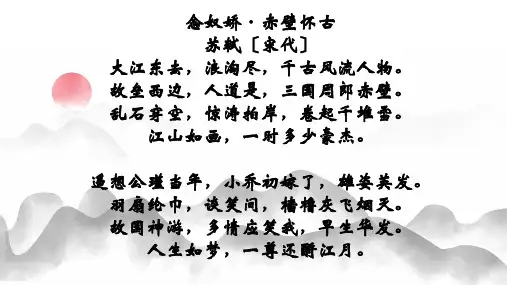 念奴娇·赤壁怀古
苏轼〔宋代〕
大江东去，浪淘尽，千古风流人物。
故垒西边，人道是，三国周郎赤壁。
乱石穿空，惊涛拍岸，卷起千堆雪。
江山如画，一时多少豪杰。
遥想公瑾当年，小乔初嫁了，雄姿英发。
羽扇纶巾，谈笑间，樯橹灰飞烟灭。
故国神游，多情应笑我，早生华发。
人生如梦，一尊还酹江月。